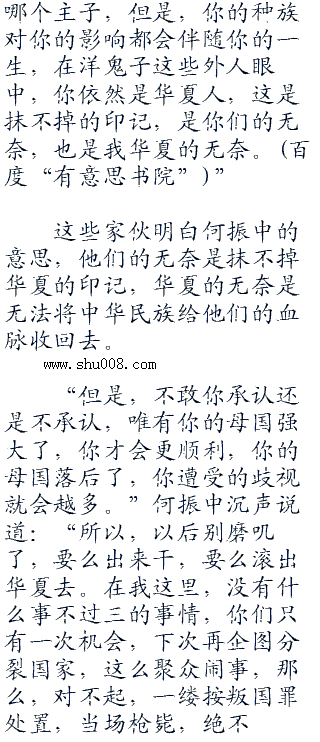 哪个主子，但是，你的种族
对你的影响都会伴随你的一
生，在洋鬼子这些外人眼
中，你依然是华夏人，这是
抹不掉的印记，是你们的无
奈，也是我华夏的无奈。(百
度“有意思书院”)”
这些家伙明白何振中的
意思，他们的无奈是抹不掉
华夏的印记，华夏的无奈是
无法将中华民族给他们的血
脉收回去。
www.shu008.com
“但是，不敢你承认还
是不承认，唯有你的母国强
大了，你才会更顺利，你的
母国落后了，你遭受的歧视
就会越多。”何振中沉声说
道：“所以，以后别磨叽
了，要么出来干，要么滚出
华夏去。在我这里，没有什
么事不过三的事情，你们只
有一次机会，下次再企图分
裂国家，这么聚众闹事，那
么，对不起，一缕按叛国罪
处置，当场枪毙，绝不